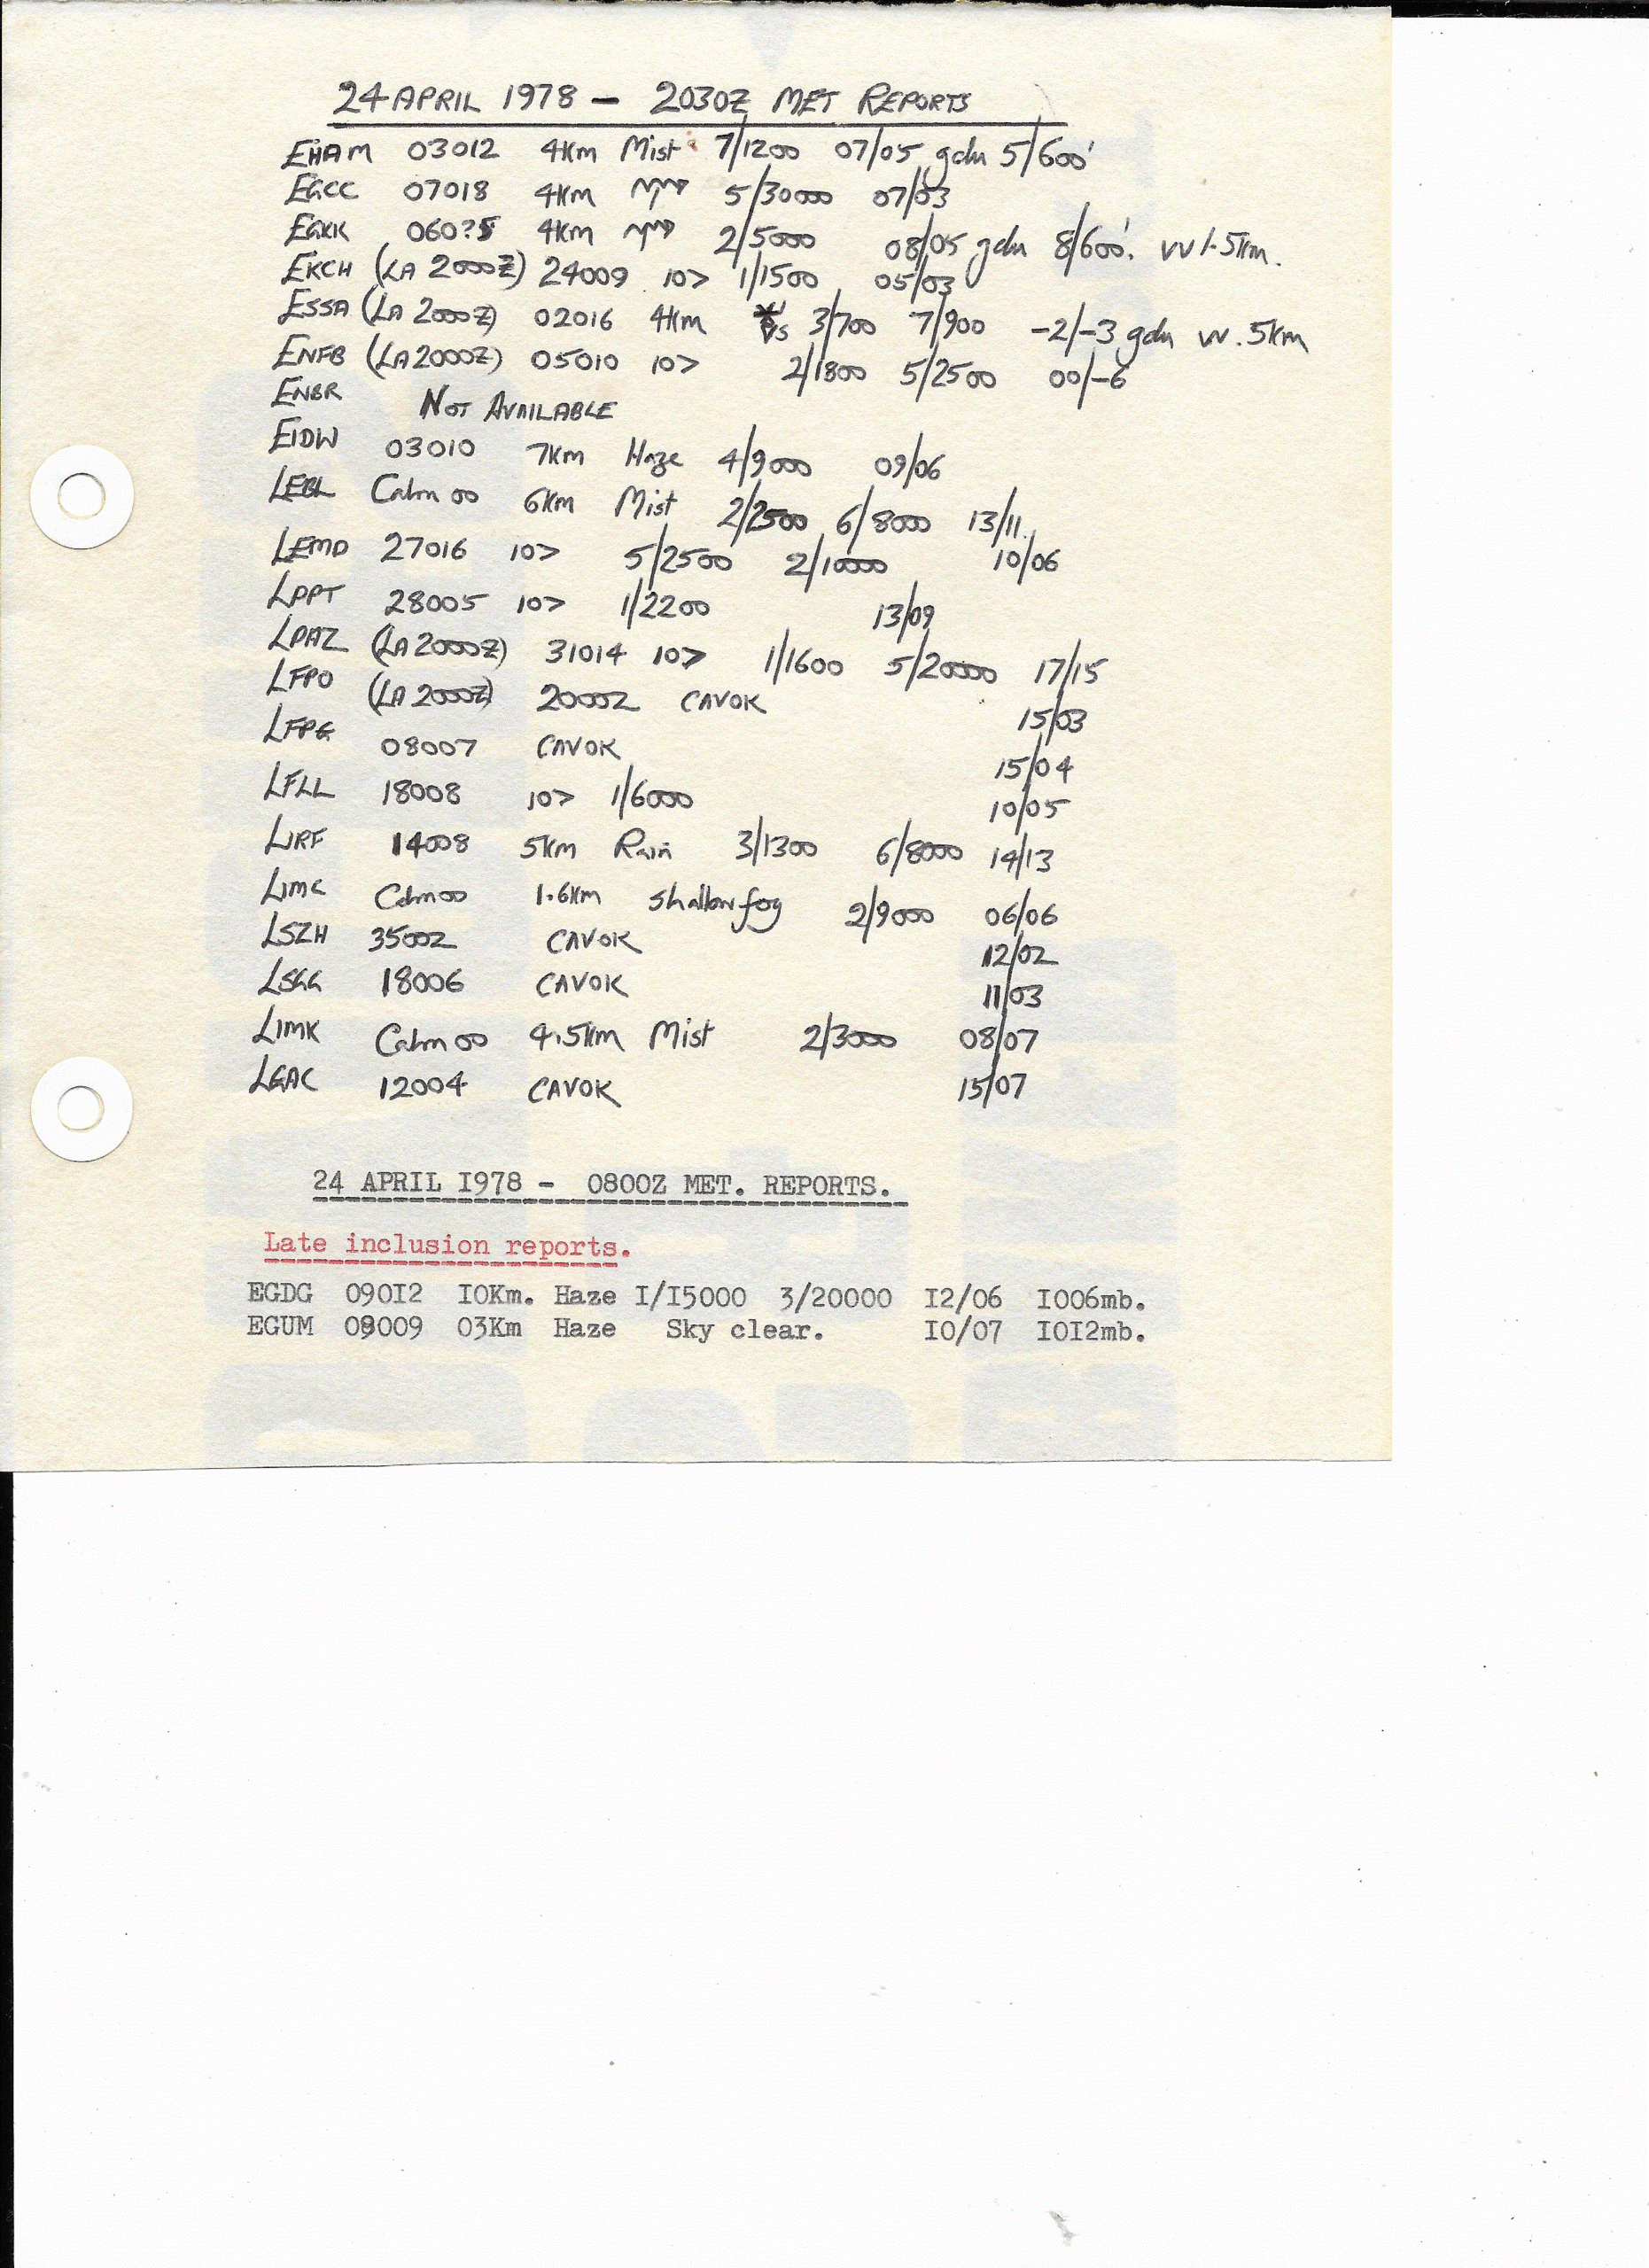 24 APRIL 1978 – 2030Z MET REPORTS
EHAM 03012 4Km Mist 7/1200 07/05 gdu 5/600'
EGCC 07018 4Km 5/30000 07/03
EGKK 060?5 4Km 2/5000 08/05 gdu 8/600'. VV 1.5Km.
EKCH (LA 2000Z) 24009 10> 1/1500 05/03
ESSA (LA 2000Z) 02016 4Km 3/700 7/900 -2/-3 gdu VV .5Km
ENFB (LA 2000Z) 05010 10> 2/1800 5/2500 00/-6
ENBR NOT AVAILABLE
EIDW 03010 7Km Haze 4/9000 09/06
LEBL Calm 00 6Km Mist 2/2500 6/8000 13/11.
LEMD 27016 10> 5/2500 2/10000 10/06
LPPT 28005 10> 1/2200 13/09
LPAZ (LA 2000Z) 31014 10> 1/1600 5/20000 17/15
LFPO (LA 2000Z) 20002 CAVOK 15/03
LFPG 08007 CAVOK 15/04
LFLL 18008 10> 1/6000 10/05
LIRF 14008 5Km Rain 3/1300 6/8000 14/13
LIMC Calm 00 1.6Km Shallow fog 2/9000 06/06
LSZH 35002 CAVOK 12/02
LSGG 18006 CAVOK 11/03
LIMK Calm 00 4.5Km Mist 2/3000 08/07
LGAC 12004 CAVOK 15/07
24 APRIL I978 - 0800Z MET. REPORTS.
Late inclusion reports.
EGDG 090I2 I0Km. Haze I/I5000 3/20000 I2/06 I006mb.
EGUM 09009 03Km Haze Sky clear. I0/07 I0I2mb.